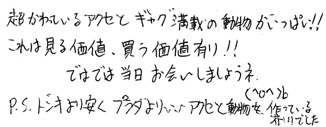 超かわいいアクセと ギャグ満載の動物がいっぱい!!
これは見る価値、買う価値有り!!
ではでは当日お会いしましょうネ
(^o^)b
P.S. ドンキより安く プラダよりいいアクセと動物を作っている
介川でした